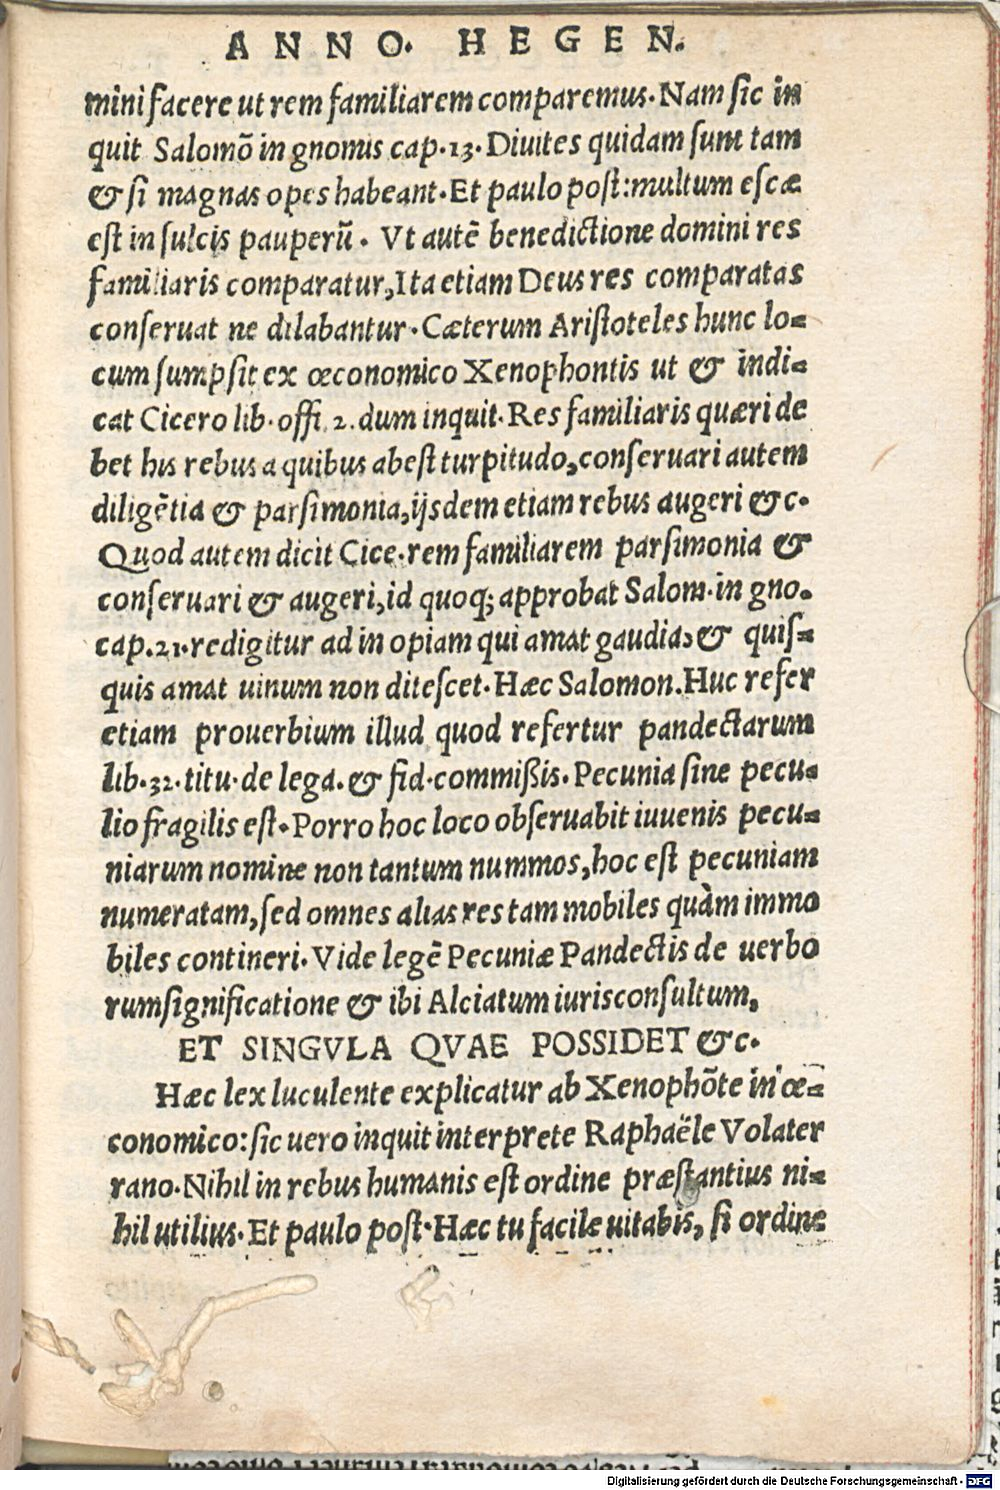 ANNO. HEGEN.
mini facere ut rem familiarem comparemus. Nam sic in
quit Salomõ in gnomis cap. 13. Diuites quidam sunt tam
& si magnas opes habeant. Et paulo post: multum escæ
est in sulcis pauperũ. Vt autẽ benedictione domini res
familiaris comparatur, Ita etiam Deus res comparatas
conseruat ne dilabantur. Cæterum Aristoteles hunc lo=
cum sumpsit ex œconomico Xenophontis ut & indi=
cat Cicero lib. offi. 2. dum inquit. Res familiaris quæri de
bet his rebus a quibus abest turpitudo, conseruari autem
diligẽtia & parsimonia, ijsdem etiam rebus augeri &c.
Quod autem dicit Cice. rem familiarem parsimonia &
conseruari & augeri, id quoq; approbat Salom. in gno.
cap. 21. redigitur ad in opiam qui amat gaudia, & quis=
quis amat uinum non ditescet. Hæc Salomon. Huc refer
etiam prouerbium illud quod refertur pandectarum
lib. 32. titu. de lega. & fid. commißis. Pecunia sine pecu=
lio fragilis est. Porro hoc loco obseruabit iuuenis pecu=
niarum nomine non tantum nummos, hoc est pecuniam
numeratam, sed omnes alias res tam mobiles quàm immo
biles contineri. Vide legẽ Pecuniæ Pandectis de uerbo
rum significatione & ibi Alciatum iurisconsultum,
ET SINGVLA QVAE POSSIDET &c.
Hæc lex luculente explicatur ab Xenophõte in œ=
conomico: sic uero inquit interprete Raphaële Volater
rano. Nihil in rebus humanis est ordine præstantius ni=
hil utilius. Et paulo post. Hæc tu facile uitabis, si ordine
Digitalisierung gefördert durch die Deutsche Forschungsgemeinschaft - DFG